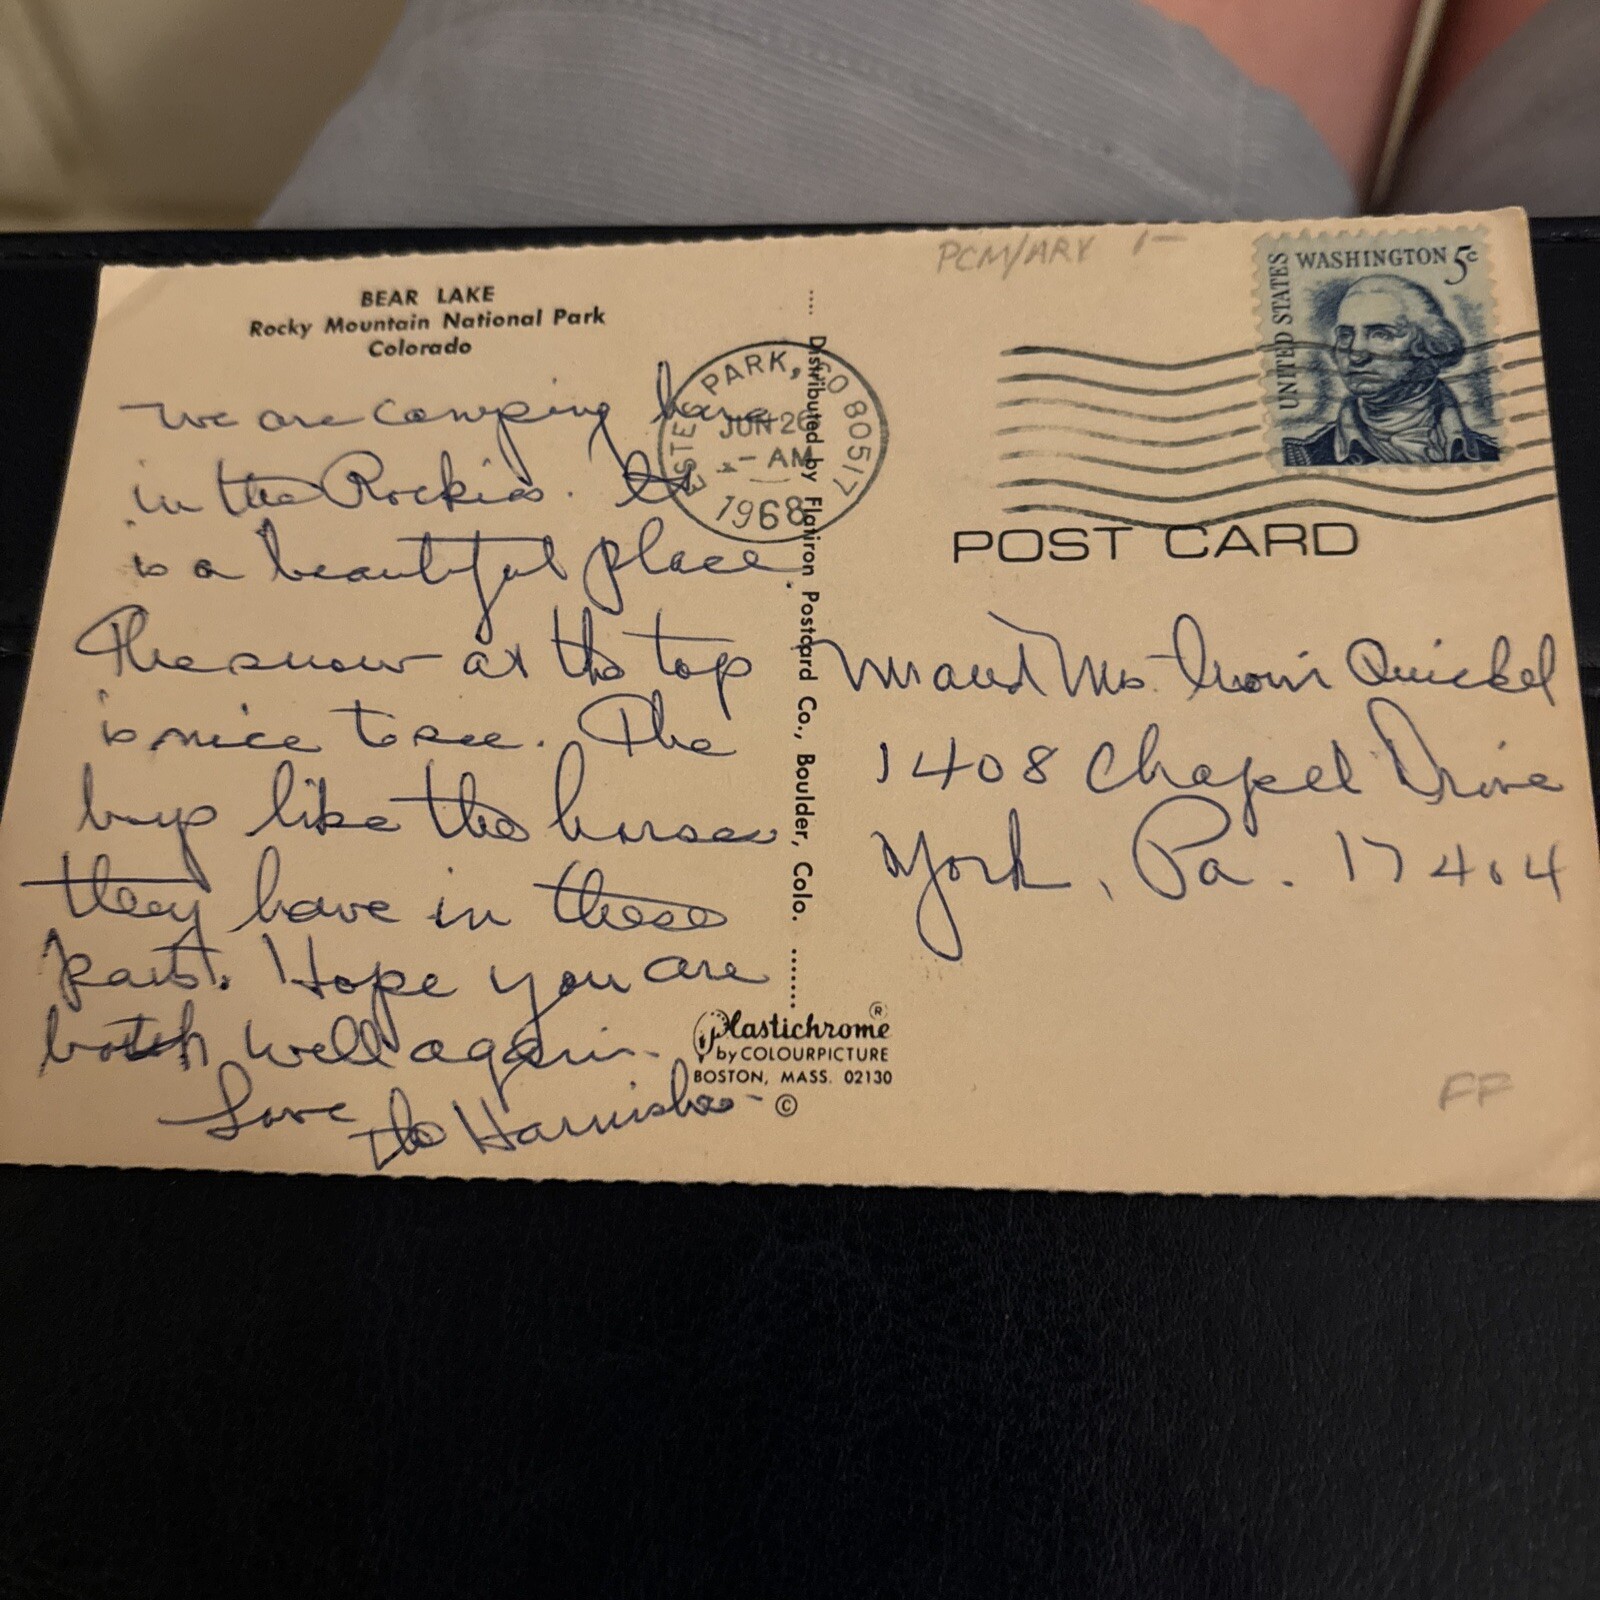 BEAR LAKE
Rocky Mountain National Park
Colorado
we are camping here
in the Rockies. It
is a beautiful place.
The snow at the top
is nice to see. The
boys like the horses
they have in these
parts. Hope you are
both well again.
Love
the Harnishes
Distributed by Flatiron Postcard Co., Boulder, Colo.
Plastichrome ®
by COLOURPICTURE
BOSTON, MASS. 02130
©
ESTES PARK, CO 80517
JUN 26
AM
1968
PCM/ARY 1-
UNITED STATES
WASHINGTON 5c
POST CARD
Mr and Mrs. Quickel
1408 Chapel Drive
York, Pa. 17404
FF